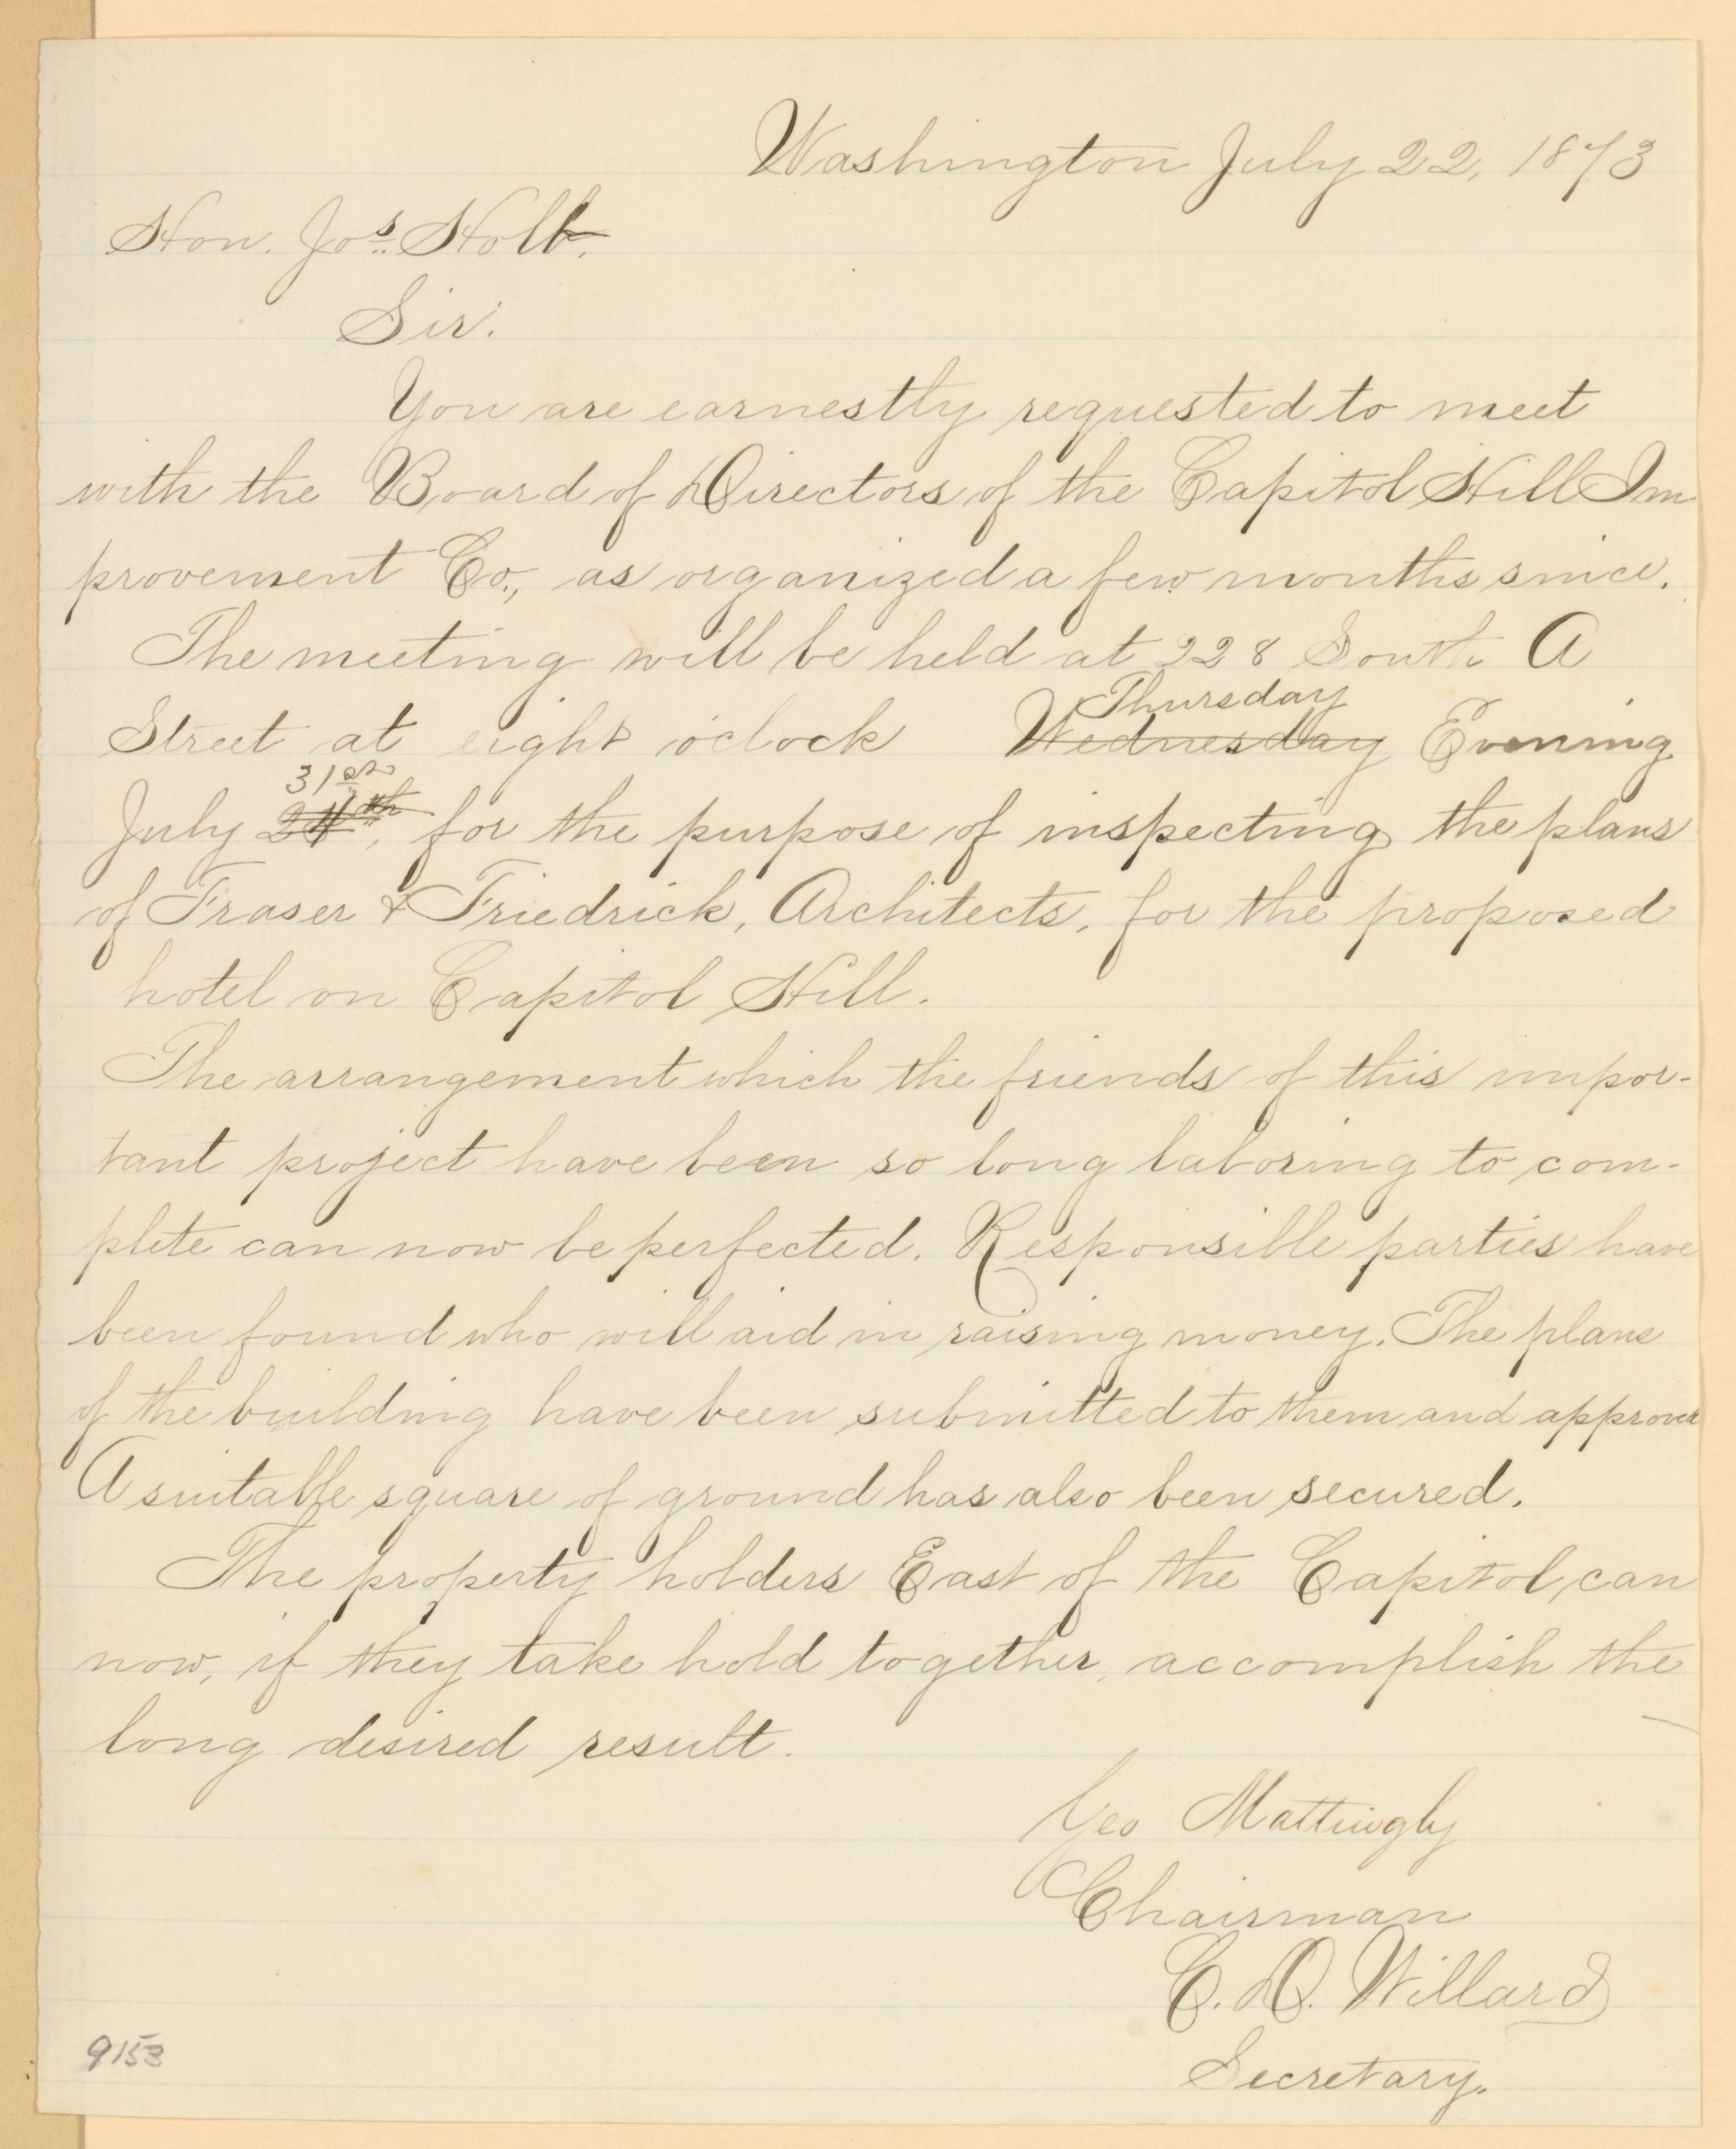 Washington July 22, 1873
Hon. Jos. Holt.
Sir.
You are earnestly requested to meet
with the Board of Directors of the Capitol Hill Im
provement Co., as organized a few months since.
The meeting will be held at 228 South A
Thursday
Street at eight o'clock Wednesday Evening
31st
July 24th, for the purpose of inspecting the plans
of Fraser & Friedrick, Architects, for the proposed
hotel on Capitol Hill.
The arrangement which the friends of this impor-
tant project have been so long laboring to com-
plete can now be perfected. Responsible parties have
been found who will aid in raising money. The plans
of the building have been submitted to them and approved
A suitable square of ground has also been secured.
The property holders East of the Capitol can
now, if they take hold together, accomplish the
long desired result.
Geo Mattingly
Chairman
C. D. Willard
Secretary.
9153